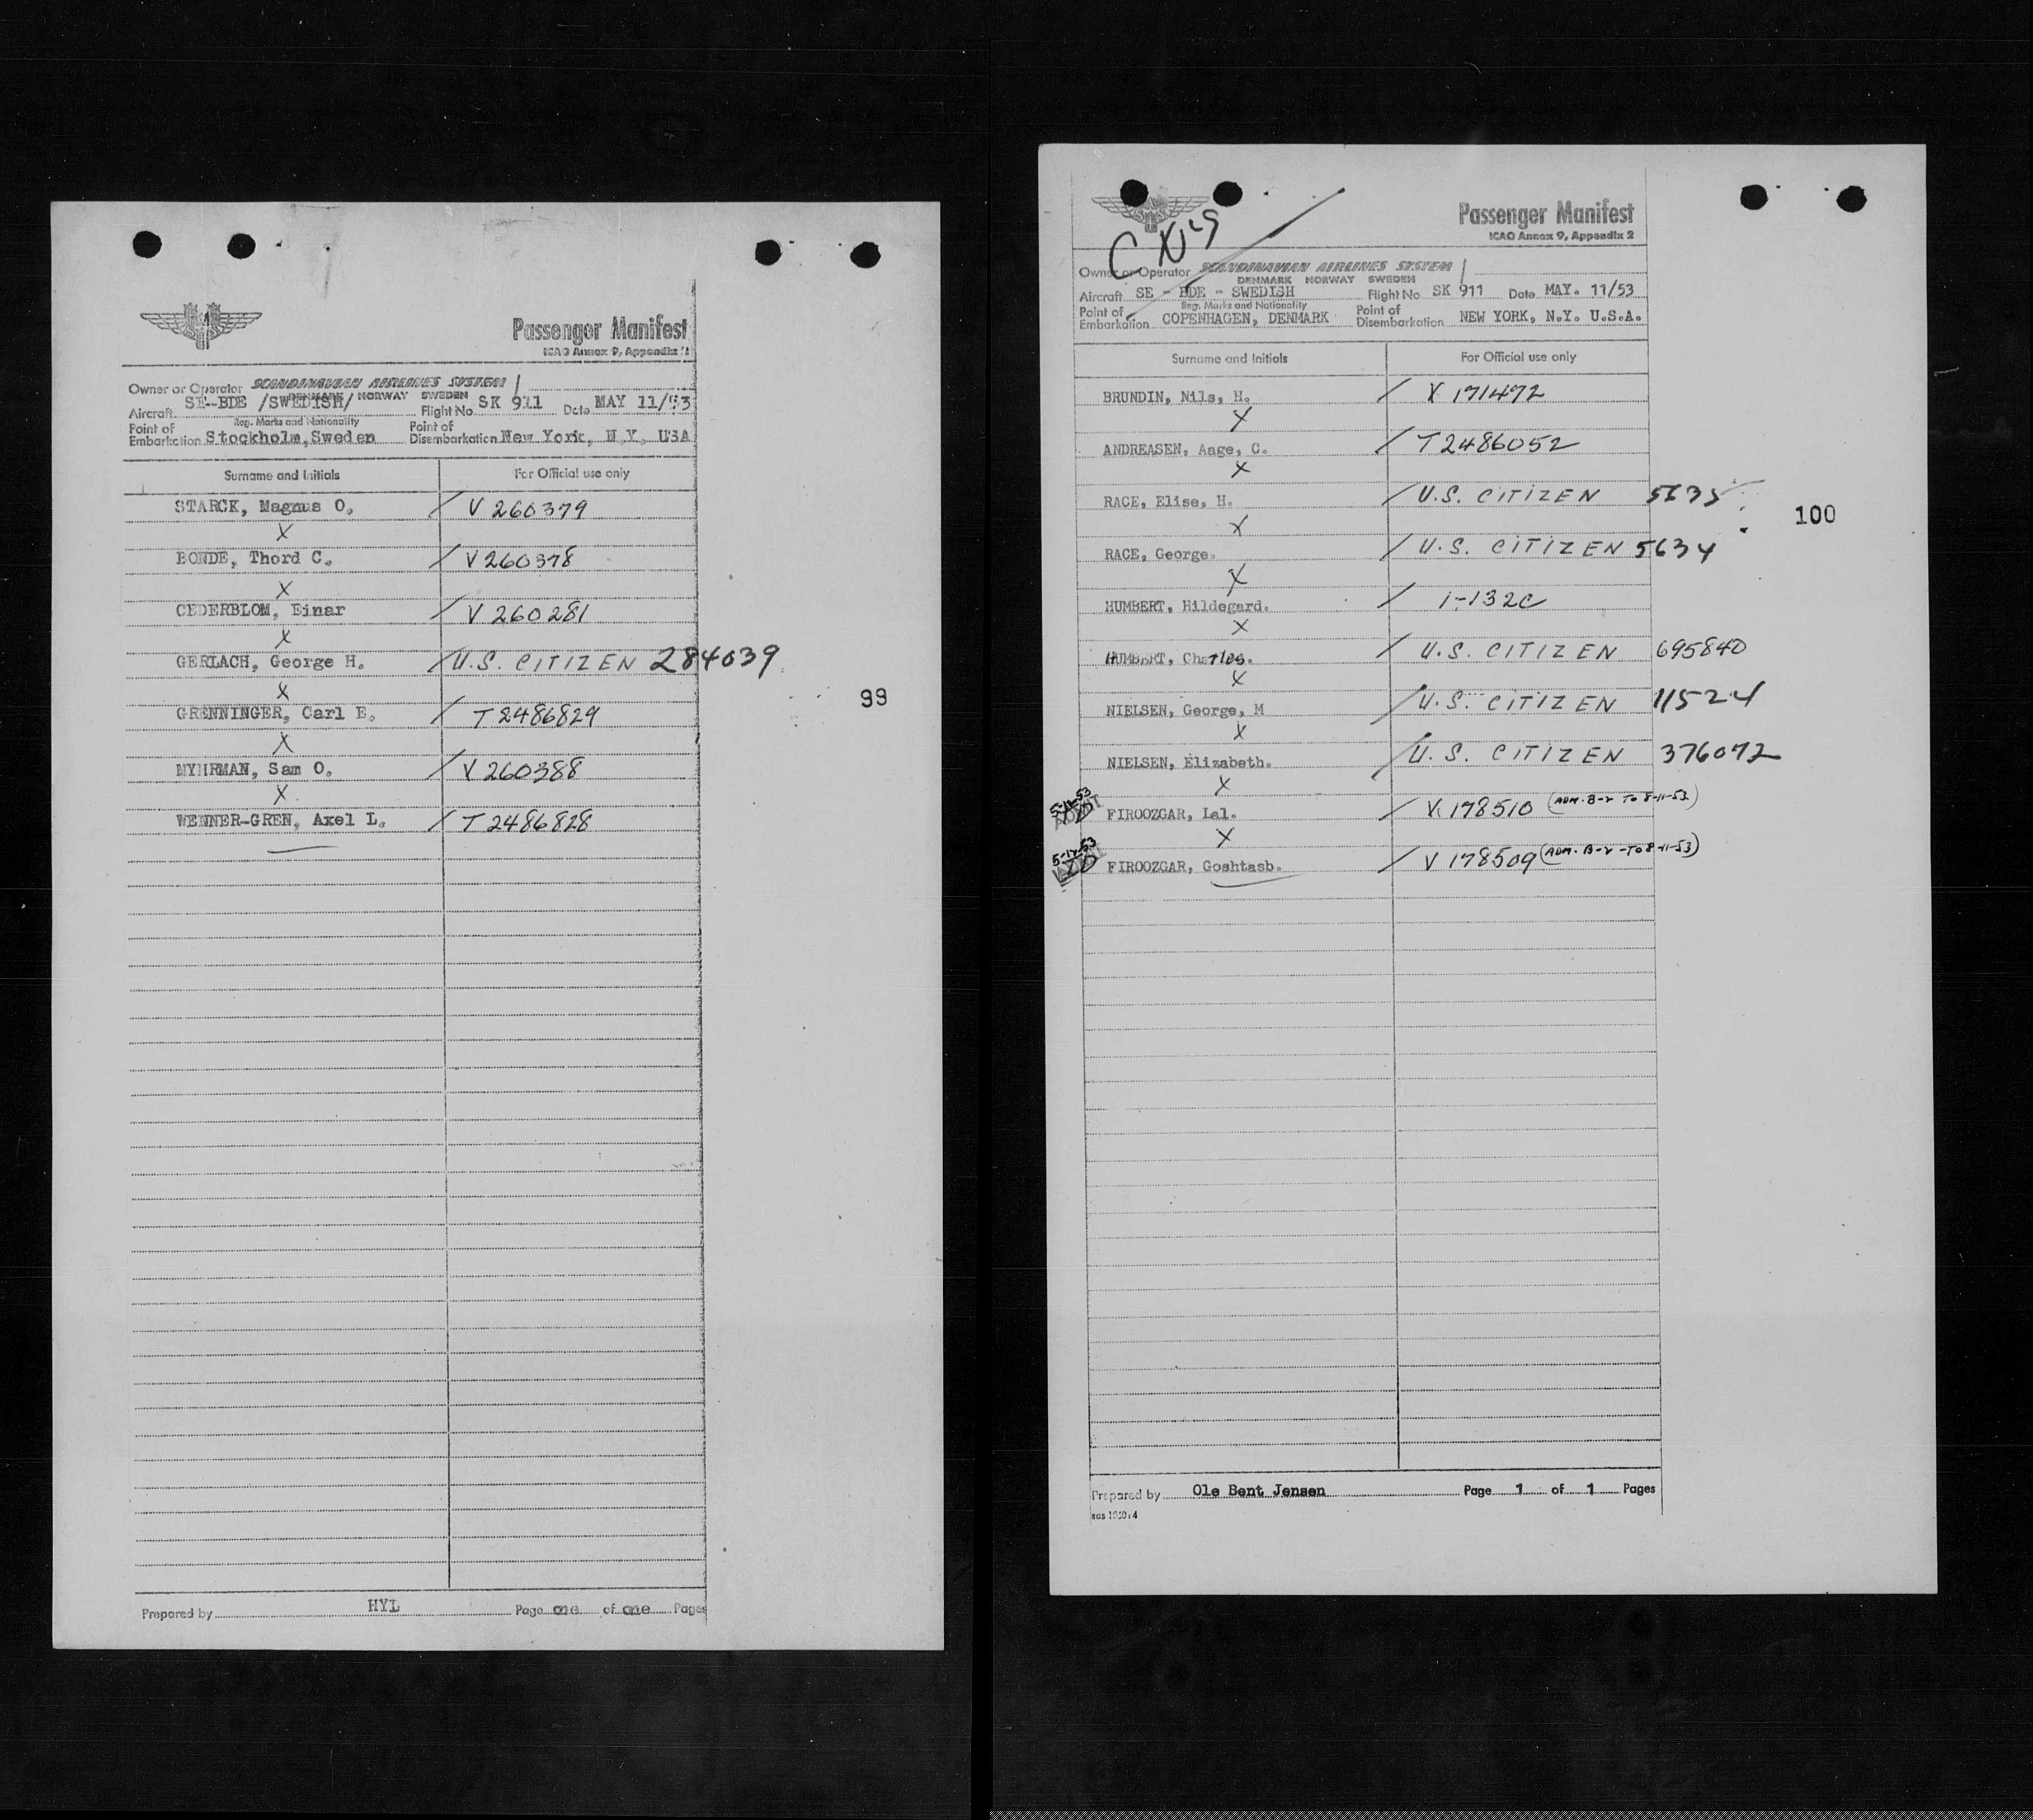 Passenger Manifest
ICAO Annex 9, Appendix 2
Owner or Operator SCANDINAVIAN AIRLINES SYSTEM
DENMARK NORWAY SWEDEN
Aircraft SE--BDE /SWEDISH/ Flight No. SK 911 Date MAY 11/53
Reg. Marks and Nationality
Point of Embarkation Stockholm, Sweden Point of Disembarkation New York, N.Y. USA
Surname and Initials For Official use only
STARCK, Magnus O. / V 260379
X
BONDE, Thord C. / V 260378
X
CEDERBLOM, Einar / V 260281
X
GERLACH, George H. / U.S. CITIZEN 284039
X
99
GRENNINGER, Carl E. / T 2486829
X
MYHRMAN, Sam O. / V 260388
X
WENNER-GREN, Axel L. / T 2486828
Prepared by HYL Page one of one Pages
SAS
Passenger Manifest
ICAO Annex 9, Appendix 2
Owner or Operator SCANDINAVIAN AIRLINES SYSTEM
DENMARK NORWAY SWEDEN
Aircraft SE - BDE - SWEDISH Flight No SK 911 Date MAY. 11/53
Reg. Marks and Nationality
Point of Embarkation COPENHAGEN, DENMARK Point of Disembarkation NEW YORK, N.Y. U.S.A.
Surname and Initials For Official use only
BRUNDIN, Nils, H. / V 171472
X
ANDREASEN, Aage, C. / T 2486052
X
RACE, Elise, H. / U.S. CITIZEN 5635
100
X
RACE, George. / U.S. CITIZEN 5634
X
HUMBERT, Hildegard. / 1-132C
X
HUMBERT, Charles. / U.S. CITIZEN 695840
X
NIELSEN, George, M / U.S. CITIZEN 11524
X
NIELSEN, Elizabeth. / U.S. CITIZEN 376072
X
5-12-53
FIROOZGAR, Lal. / V 178510 (ADM. B-2 TO 8-11-53)
X
5-12-53
FIROOZGAR, Goshtasb. / V 178509 (ADM. B-2 - TO 8-11-53)
Prepared by Ole Bent Jensen Page 1 of 1 Pages